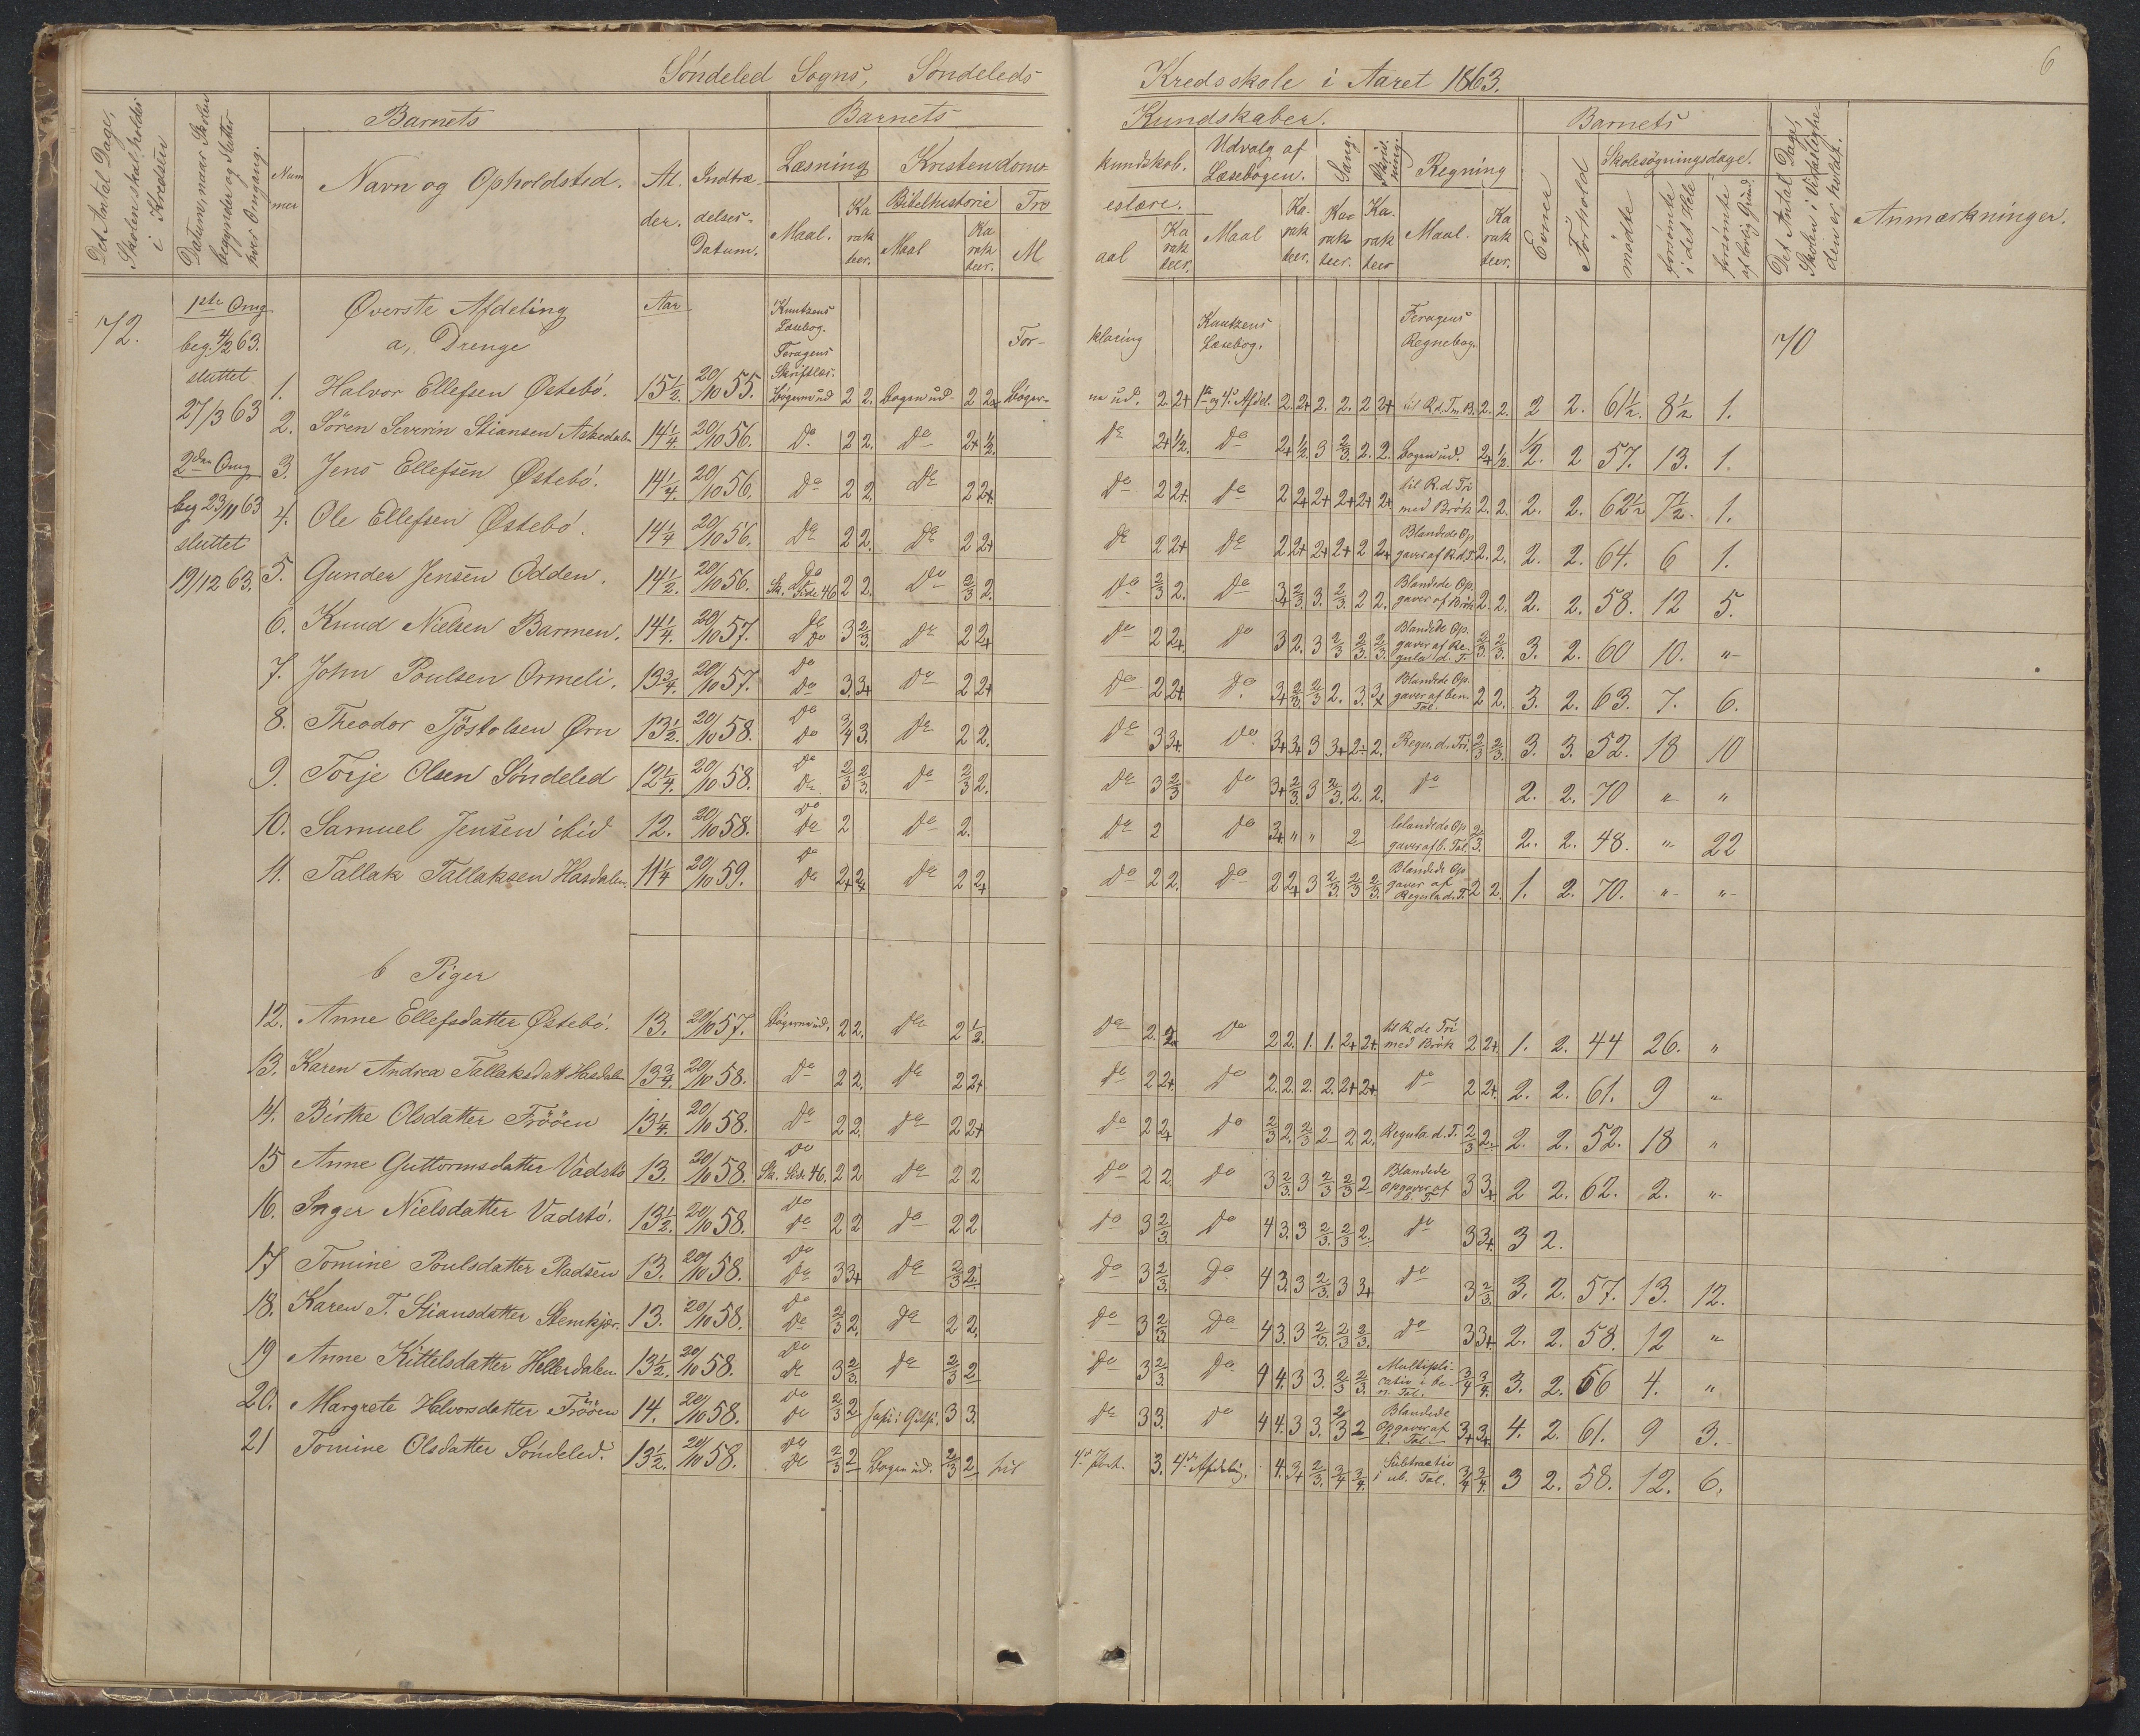 Söndeled Sogns, Söndeleds Kredsskole i Aaret 1863.
6
Det Antal Dage, Skolen skal holdes i Kredsen
Datum, naar Skolen begynder og slutter hver Omgang.
Barnets
Nummer
Navn og Opholdsted.
Alder.
Indtrædelses-Datum.
Barnets Kundskaber.
Læsning
Maal.
Karakteer.
Kristendomskundskab.
Bibelhistorie
Maal
Karakteer.
Troeslære.
Maal
Karakteer.
Udvalg af Læsebogen.
Maal
Karakteer.
Sang.
Karakteer.
Skrivning.
Karakteer
Regning
Maal.
Karakteer.
Barnets
Evner
Forhold
Skolesøgningsdage.
mødte
forsömte i det Hele
forsömte af lovlig Grund.
Det Antal Dage, Skolen i Virkeligheden er holdt.
Anmærkninger.
72.
1ste Omg
beg. 4/2 63.
sluttet
27/3 63
2den Omg
beg 23/11 63
sluttet
19/12 63.
Øverste Afdeling
a, Drenge
Aar
Knutzens Læsebog.
Feragens Skriftlæs.
Forklaring
Knutzens Læsebog.
Feragens Regnebog.
70
1. Halvor Ellefsen Østebö. 15½. 20/10 55. Bögerne ud 2 2. Bogen ud. 2 2+ Bögerne ud. 2. 2+ 1ste og 4. Afdel. 2. 2+ 2. 2. 2 2+ til R. d. Tri. m B. 2. 2. 2 2. 61½. 8½ 1.
2. Sören Severin Stiansen Askedalen 14¼. 20/10 56. do 2 2. do 2+ ½. do 2+ ½. do 2+ ½. 3 2/3. 2. 2. Bogen ud. 2+ ½. ½. 2 57. 13. 1.
3. Jens Ellefsen Østebö. 14¼. 20/10 56. do 2 2. do 2 2+. do 2 2+. do 2 2+ 2+ 2+ 2+ 2+ til R. d Tri med Brök 2. 2. 2. 2. 62½ 7½. 1.
4. Ole Ellefsen Østebö. 14¼ 20/10 56. do 2 2. do 2 2+ do 2 2+ do 2 2+ 2+ 2+ 2 2+ Blandede Opgaver af R. d. T. 2. 2. 2. 2. 64. 6 1.
5. Gunder Jensen Odden. 14½. 20/10 56. do Sk. Side 46 2 2. do 2/3 2. do 2/3 2. do 3+ 2/3. 3. 2/3. 2 2. Blandede Opgaver af Brök 2. 2. 2. 2. 58. 12 5.
6. Knud Nielsen Barmen. 14¼. 20/10 57. do do 3 2/3. do 2 2+ do 2 2+ do 3 2. 3 2/3 2/3. 2/3. Blandede Opgaver af Regula d. T. 2/3. 2/3. 3. 2. 60 10. "
7. John Poulsen Ormeli. 13¾. 20/10 57. do do 3. 3+ do 2 2+ do 2 2+ do 3+ 2/3. 2/3 2. 3. 3+ Blandede Opgaver af ben. Tal. 2 2. 3. 2. 63. 7. 6.
8. Theodor Tjöstolsen Ørn 13½. 20/10 58. do do 3/4 3. do 2 2. do 3 3+. do 3+ 3+ 3 3+ 2÷ 2. Regu. d. Tri. 2/3 2/3. 3. 3. 52. 18 10
9. Torje Olsen Söndeled 12¼. 20/10 58. do do 2/3 2/3. do 2/3 2. do 3 2/3 do 3+ 2/3. 3 2/3. 2. 2. do 2. 2. 70 " "
10. Samuel Jensen ibid 12. 20/10 58. do do 2 do 2. do 2 do 3+ " " 2 blandede Opgaver af b. Tal. 2/3. 2. 2. 48. " 22
11. Tallak Tallaksen Hasdalen. 11¼ 20/10 59. do do 2+ 2+ do 2 2+ do 2 2. do 2 2+ 3 2/3. 2/3 2/3. Blandede Opgaver af Regula d. T. 2 2. 1. 2. 70. " "
b Piger
12. Anne Ellefsdatter Østebö. 13. 20/10 57. Bögerne ud. 2 2. do 2 ½. do 2. 2 do 2 2. 1. 1. 2+ 2+. til R. de Tri med Brök 2 2+. 1. 2. 44 26. "
13. Karen Andrea Tallaksdatt Hasdalen 13¾. 20/10 58. do 2 2. do 2 2+ do 2 2+. do 2. 2. 2. 2. 2+ 2+ do 2 2+. 2. 2. 61. 9 "
14. Birthe Olsdatter Frööen 13¼. 20/10 58. do 2 2. do 2 2+ do 2 2+ do 2/3 2. 2/3 2 2 2. Regula. d. T. 2/3 2. 2. 2. 52. 18 "
15 Anne Guttormsdatter Vadstö 13. 20/10 58. do Sk. Side 46. 2 2 do 2 2 do 2 2. do 3 2/3. 3 2/3 2/3 2 Blandede Opgaver af b. T. 3 3+. 2 2. 62. 2. "
16. Inger Nielsdatter Vadstö. 13½. 20/10 58. do do 2 2 do 2 2 do 3 2/3. do 4 3. 3 2/3. 2/3 2. do 3 3+. 3 2.
17 Tomine Poulsdatter 13. 20/10 58. do do 3 3+ do 2/3 2. do 3 2/3. do 4 3. 3 2/3. 3 3+ do 3 2/3. 3. 2. 57. 13. 12.
18. Karen T. Stiansdatter Stemkjær. 13. 20/10 58. do do 2/3 2. do 2 2. do 3 2/3. do 4 3. 3 2/3. 2/3 2/3. do 3 3+. 2. 2. 58. 12 "
19 Anne Kittelsdatter Hellerdalen. 13½. 20/10 58. do do 3 2/3. do 2/3 2 do 3 2/3. do 4 4. 3 3. 2/3 2/3. Multiplicatio i ben. Tal. 3/4 3/4. 3. 2. 66 4. "
20. Margrete Halvorsdatter Frööen 14. 20/10 58. do do 2/3 2. 3 3. do 3 3. do 4 4. 3 3. 3 2 Blandede Opgaver af b. Tal. 3+ 3+. 4. 2. 61. 9 3.
21 Tomine Olsdatter Söndeled. 13½. 20/10 58. do do 2/3 2 Bogen ud. 2/3 2 til 4. Part. 3. 4de Afdeling. 4. 3+ 2/3. 3/4 3/4. Subtractio i ub. Tal. 3/4 3/4. 3 2. 58. 12. 6.